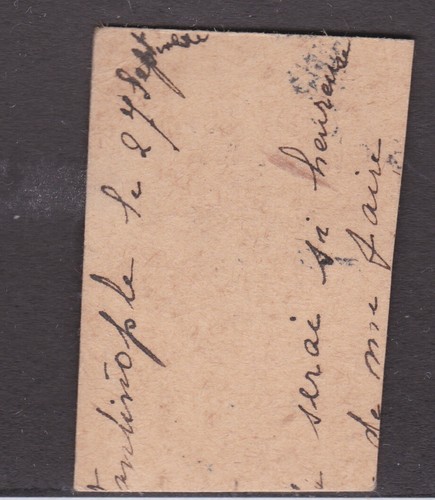 tantinople le 27 Sept
serai si heureuse
de me faire